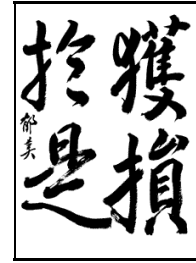 獲損
於是
郁美